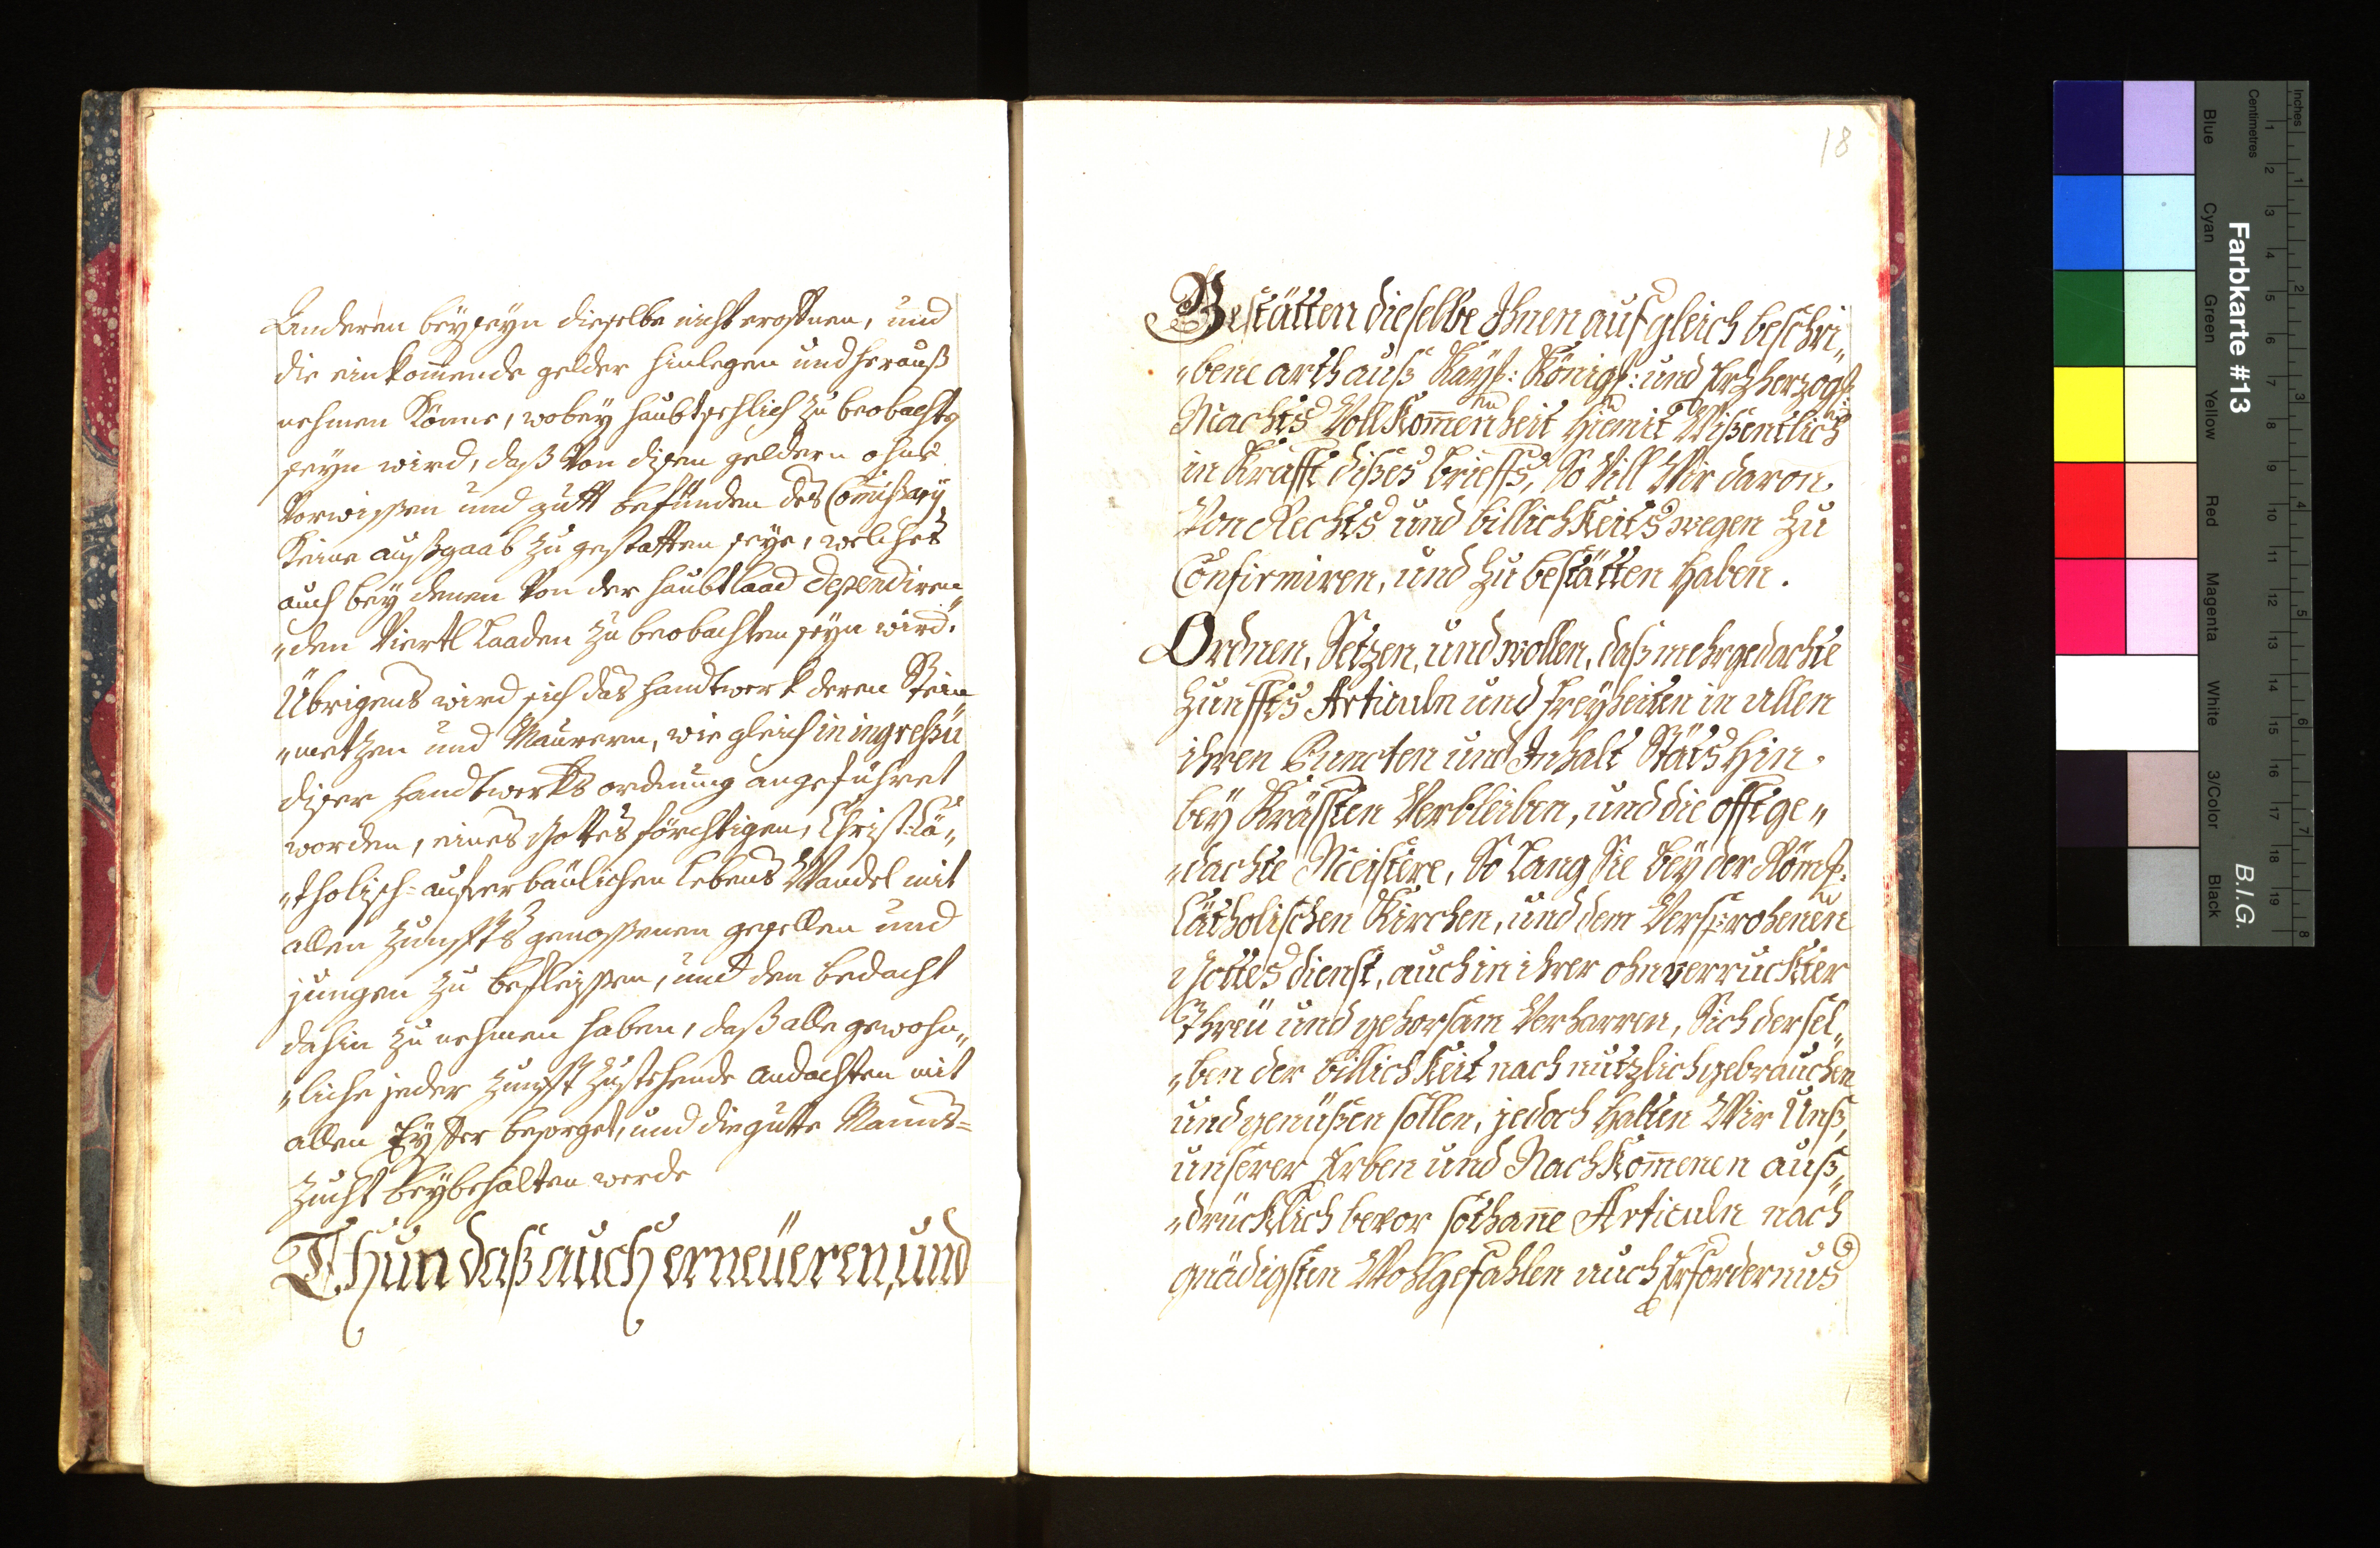 Anderen beyseyn dieselbe nicht eroffnen, und
die einkom̄ende gelder hinlegen und herauß
nehmen könne, wobey haubtsechlich zu beobachtn
seyn wird, daß von disen geldern ohne
Vorwissen und gutt befunden des Com̄issarÿ
keine außgaab zu gestatten seye, welches
auch beÿ denen von der haubtlaad dependiren„
„den Viertl Laaden zu beobachten seyn wird.
Übrigens wird sich das handtwerk deren Stein„
„metzen und Maurern, wie gleich in ingressu
diser handtwerks ordnung angeführet
worden, eines Gottes förchtigen, Christ: Ca„
„tholisch= auferbaulichen lebens Wandel mit
allen Zunffts genossenen gesellen und
jungen zu befleissen, und den bedacht
dahin zu nehmen haben, daß alle gewohn„
„liche jeder Zunfft zustehende andachten mit
allen Eyffer besorget, und die gutte Manns=
zucht beÿbehalten werde
Thun daß auch erneüeren, und
18
Bestätten dieselbe Ihnen auf gleich beschri„
„bene arth auß Kayß: Königß: und Erzherzogß:
Machts Vollkom̄enheit hiemit Wißentlich
in Krafft dißes brieffs, So Vill Wir daron
Von Rechts und billichkeits wegen zu
Confirmiren, und zu bestätten haben.
Ordnen, Setzen, und wollen, daß mehrgedachte
Zunffts Articuln und Freyheiten in allen
ihren Puncten und Inhalt Stäts hin.
beÿ Kräfften Verbleiben, und die offtge„
„dachte Meistere, So Lang Sie beÿ der Römß:
Catholischen Kirchen, und dem Versprohenen
Gottes dienst, auch in ihrer ohnverruckter
Threü und gehorsam Verharren, Sich dersel„
„ben der billichkeit nach nutzlich gebrauchen
und genüßen sollen, jedoch halten Wir Unß,
unserer Erben und Nachkom̄enen auß„
„drücklich bevor sothan̄e Articuln nach
gnädigsten Wohlgefahlen auch Erfordernus
Inches
Centimetres
Farbkarte #13
B.I.G.
Blue
Cyan
Green
Yellow
Red
Magenta
White
3/Color
Black